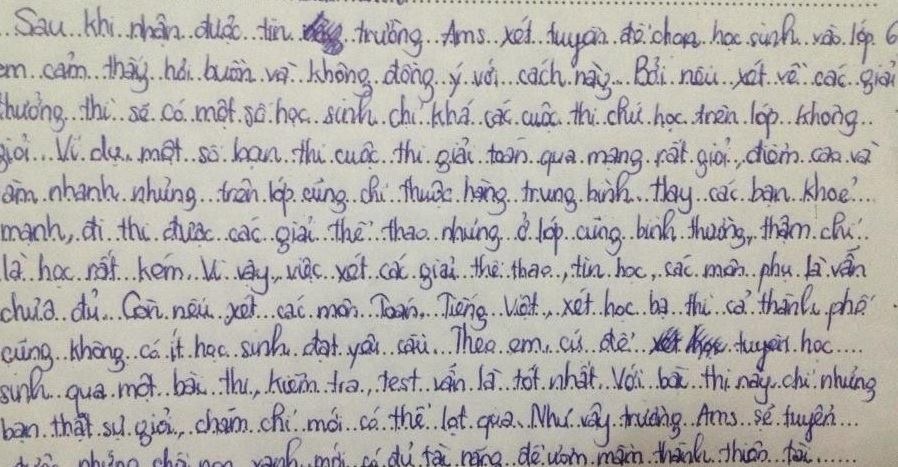 Sau khi nhận được tin trường Ams xét tuyển để chọn học sinh vào lớp 6
em cảm thấy hơi buồn và không đồng ý với cách này. Bởi nếu xét về các giải
thưởng thì sẽ có một số học sinh chỉ khá các cuộc thi chứ học trên lớp không
giỏi. Ví dụ, một số bạn thi cuộc thi giải toán qua mạng rất giỏi, điểm cao và
làm nhanh nhưng trên lớp cũng chỉ thuộc hạng trung bình. Hay các bạn khoẻ
mạnh, đi thi được các giải thể thao nhưng ở lớp cũng bình thường, thậm chí
là học rất kém. Vì vậy, việc xét các giải thể thao, tin học, các môn phụ là vẫn
chưa đủ. Còn nếu xét các môn Toán, Tiếng Việt, xét học bạ thì cả thành phố
cũng không có ít học sinh đạt yêu cầu. Theo em, cứ để tuyển học
sinh qua một bài thi, kiểm tra, test vẫn là tốt nhất. Với bài thi này chỉ những
bạn thật sự giỏi, chăm chỉ mới có thể lọt qua. Như vậy trường Ams sẽ tuyển
được những chồi non xanh mới có đủ tài năng để ươm mầm thành thiên tài